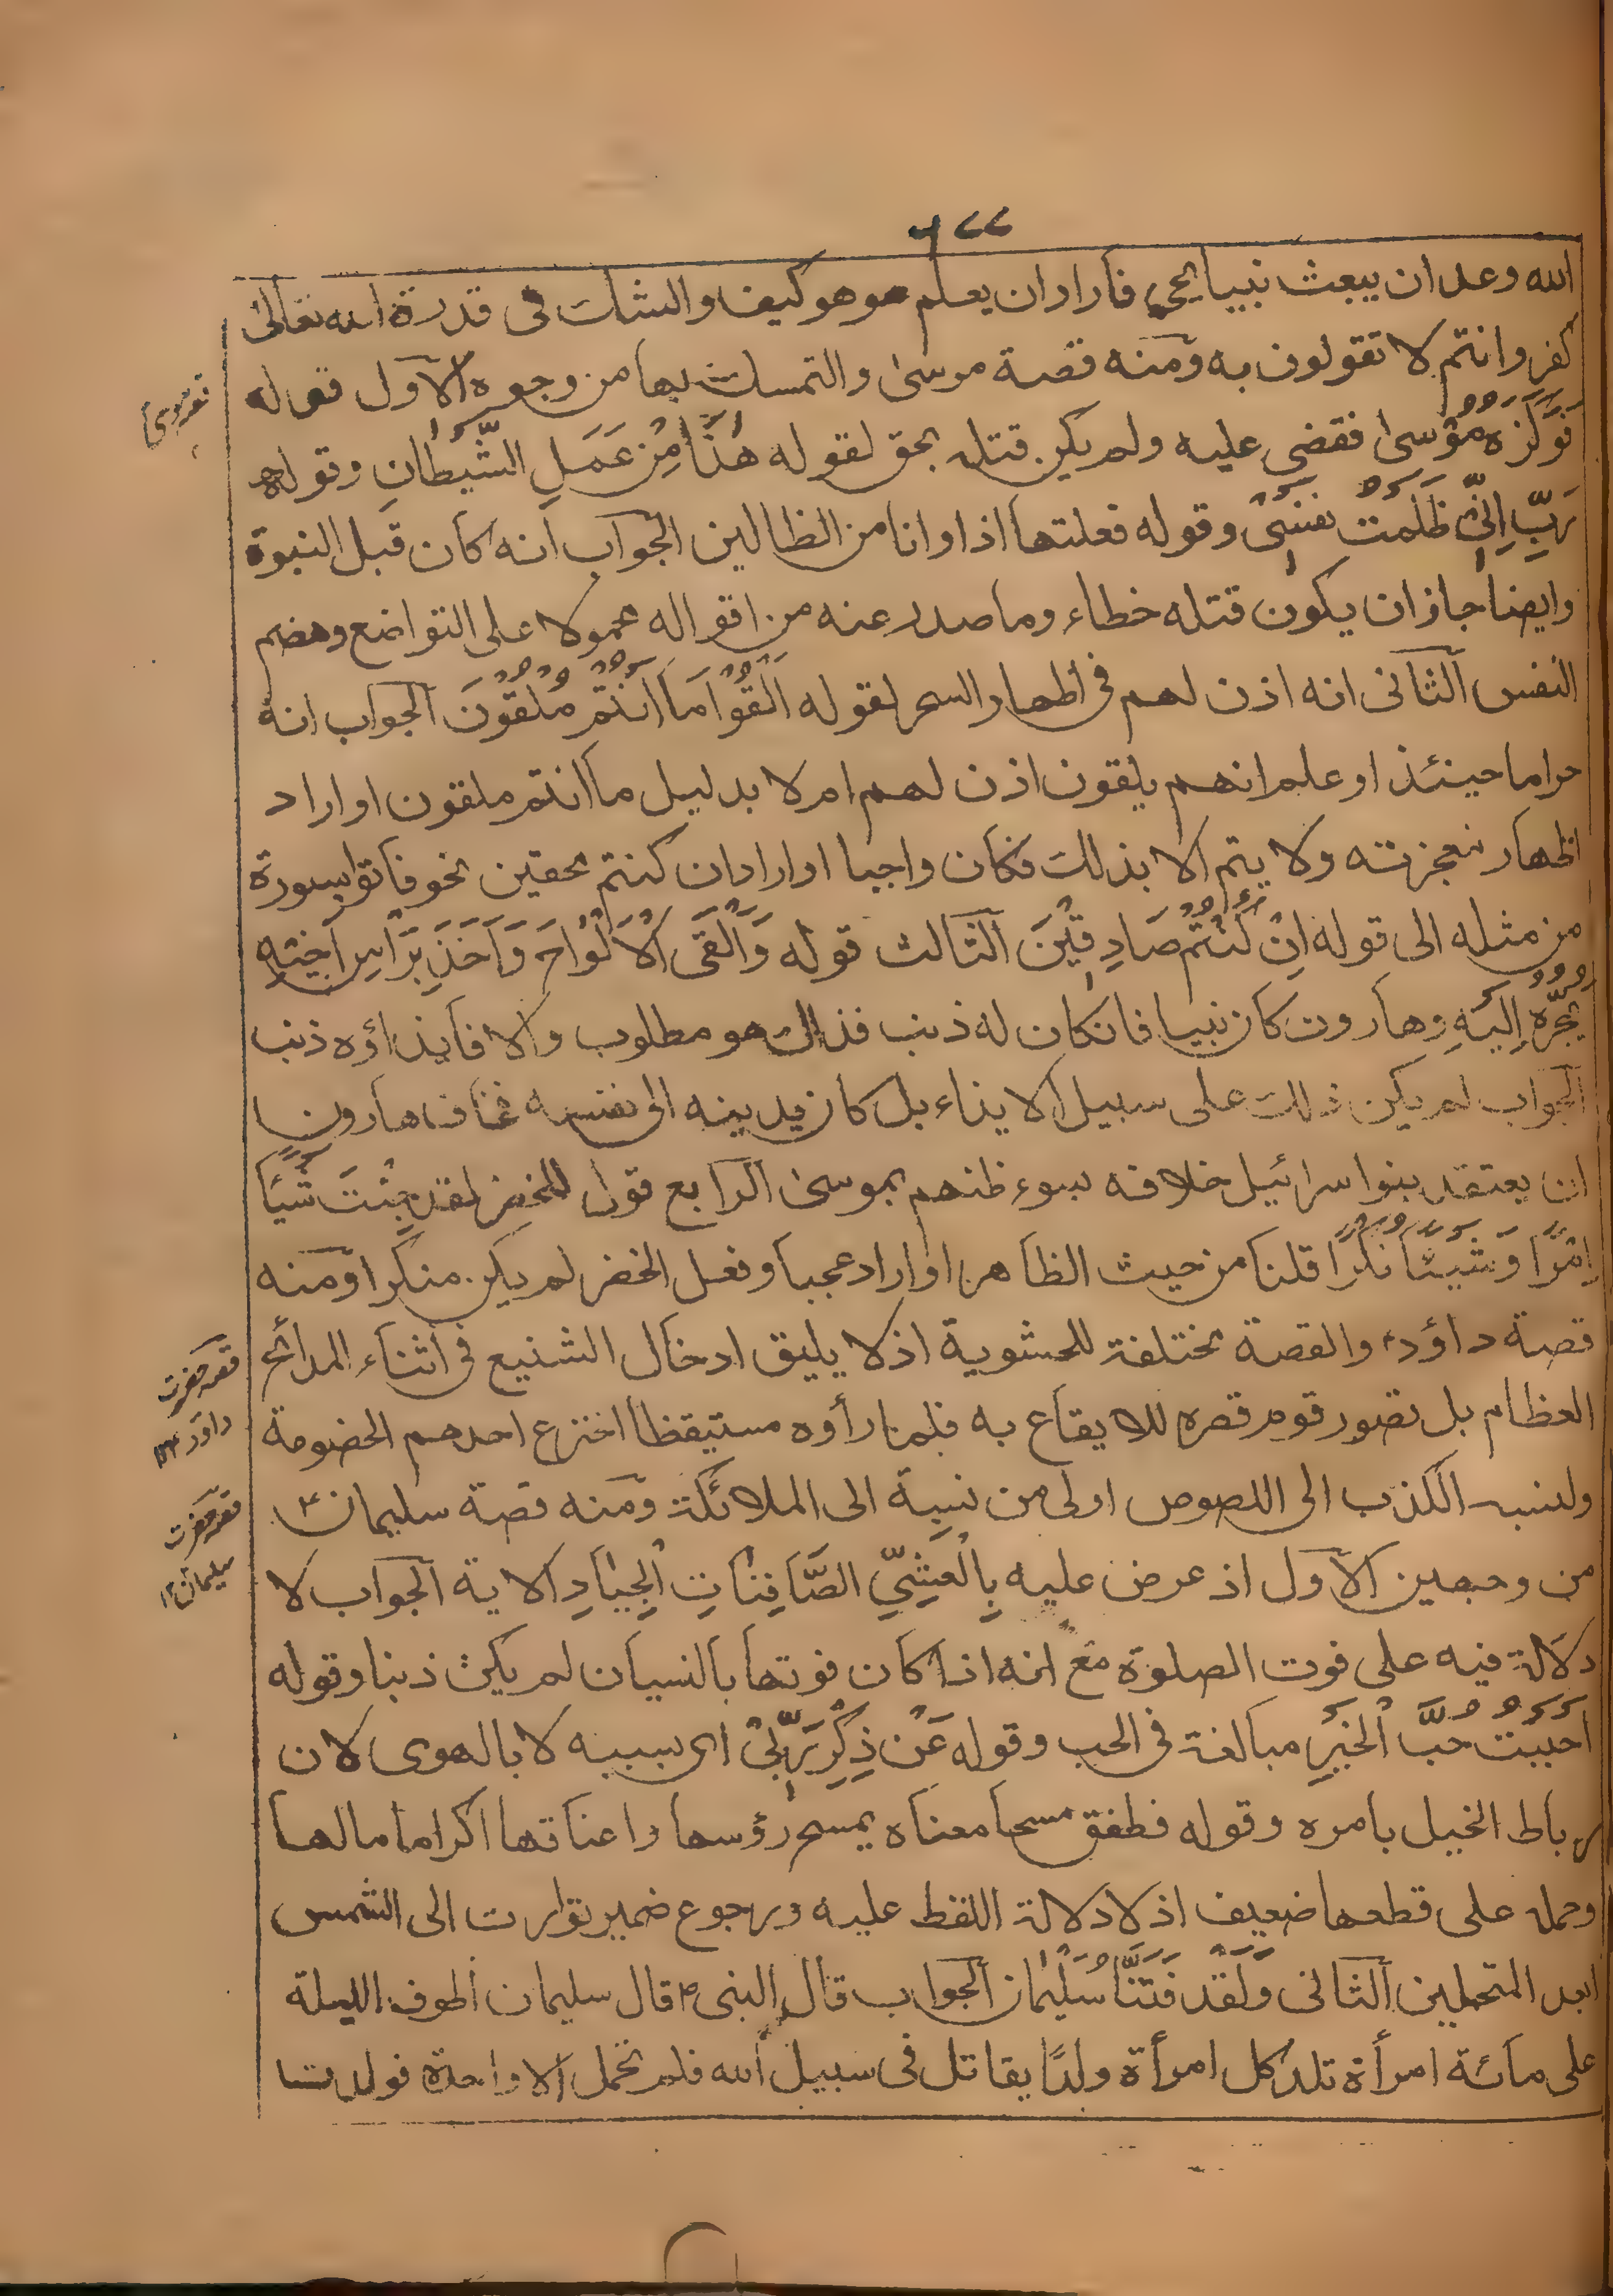 ٦٧٧
الله وعد ان يبعث نبيا يحيى فاراد ان يعلم هو هو كيف والشك فى قدرة الله تعالى
كفر وانتم لا تقولون به ومنه قصة موسىٰ والتمسك بها من وجوه الاول قوله
فَوَكَزَهٗ مُوْسىٰ فقضى عليه ولم يكن قتله بحق لقوله هٰذَا مِنْ عَمَلِ الشَّيْطَانِ وقوله
رَبِّ اِنِّىْ ظَلَمْتُ نَفْسِىْ وقوله فعلتها اذا وانا من الظالين الجواب انه كان قبل النبوة
وايضا جاز ان يكون قتله خطاء وما صدر عنه من اقواله محمولا على التواضع وهضم
النفس الثانى انه اذن لهم فى اظهار السحر لقوله اَلْقُوْا مَا اَنْتُمْ مُلْقُوْنَ الجواب انه
حراما حينئذ او علم انهم يلقون اذن لهم ام لا بدليل ما انتم ملقون او اراد
اظهار معجزته ولا يتم الا بذلك فكان واجبا او اراد ان كنتم محقين نحو فاتوا بسورة
من مثله الى قوله اِنْ كُنْتُمْ صَادِقِيْنَ الثالث قوله وَاَلْقَى الْاَلْوَاحَ وَاَخَذَ بِرَاْسِ اَخِيْهِ
يَجُرُّهٗ اِلَيْهِ وهارون كان نبيا فانكان له ذنب فذاك هو مطلوب والا فايذاؤه ذنب
الجواب لم يكن ذلك على سبيل الايذاء بل كان يدينه الى نفسه فخاف هارون
ان يعتقد بنوا سرائيل خلافه بسوء ظنهم بموسىٰ الرابع قول للخضر لقد جِئْتَ شَيْئًا
اِمْرًا وَشَيْئًا نُكْرًا قلنا من حيث الظاهر او اراد عجبا وفعل الخضر لم يكن منكرا ومنه
قصة داؤد والقصة مختلفة للحشوية اذ لا يليق ادخال الشنيع فى اثناء المدائح
العظام بل تصور قوم قصره للايقاع به فلما رأوه مستيقظا اخترع احدهم الخصومة
ولنسب الكذب الى اللصوص اولى من نسبة الى الملائكة ومنه قصة سليمان
من وجهين الاول اذ عرض عليه بِالْعَشِيِّ الصَّافِنَاتِ الْجِيَادِ الاية الجواب لا
دلالة فيه على فوت الصلوة مع انه اذا كان فوتها بالنسيان لم يكن ذنبا وقوله
اَحْبَبْتُ حُبَّ الْخَيْرِ مبالغة فى الحب وقوله عَنْ ذِكْرِ رَبِّىْ اى بسببه لا بالهوى لان
رباط الخيل بامره وقوله فطفق مسحا معناه يمسح رؤسها واعناقها اكراما مالها
وحمله على قطعها ضعيف اذ لا دلالة اللفظ عليه ورجوع ضمير توارت الى الشمس
ابعد المتحملين الثانى وَلَقَدْ فَتَنَّا سُلَيْمَانَ الجواب قال النبى قال سليمان اطوف الليلة
على مائة امرأة تلد كل امرأة ولدًا يقاتل فى سبيل الله فلم تحمل الا واحدة فولدت
قصه موسىٰ
قصه حضرت
داود ١٢
قصه حضرت
سليمان ١٢